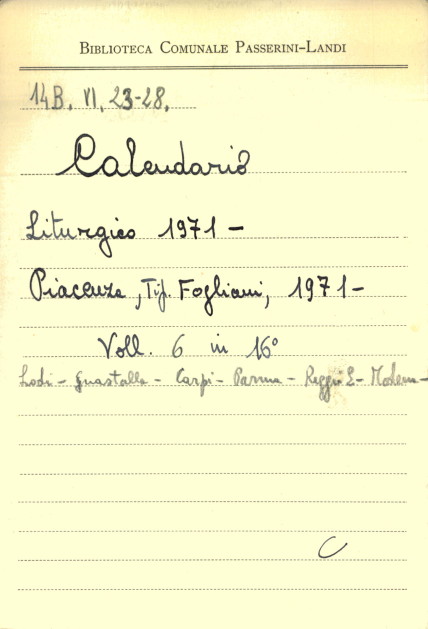 BIBLIOTECA COMUNALE PASSERINI-LANDI
14B. VI. 23-28.
Calendario
Liturgico 1971 -
Piacenza, Tip. Fogliani, 1971 -
Voll. 6 in 16°
Lodi - Guastalla - Carpi - Parma - Reggio E - Modena -
C